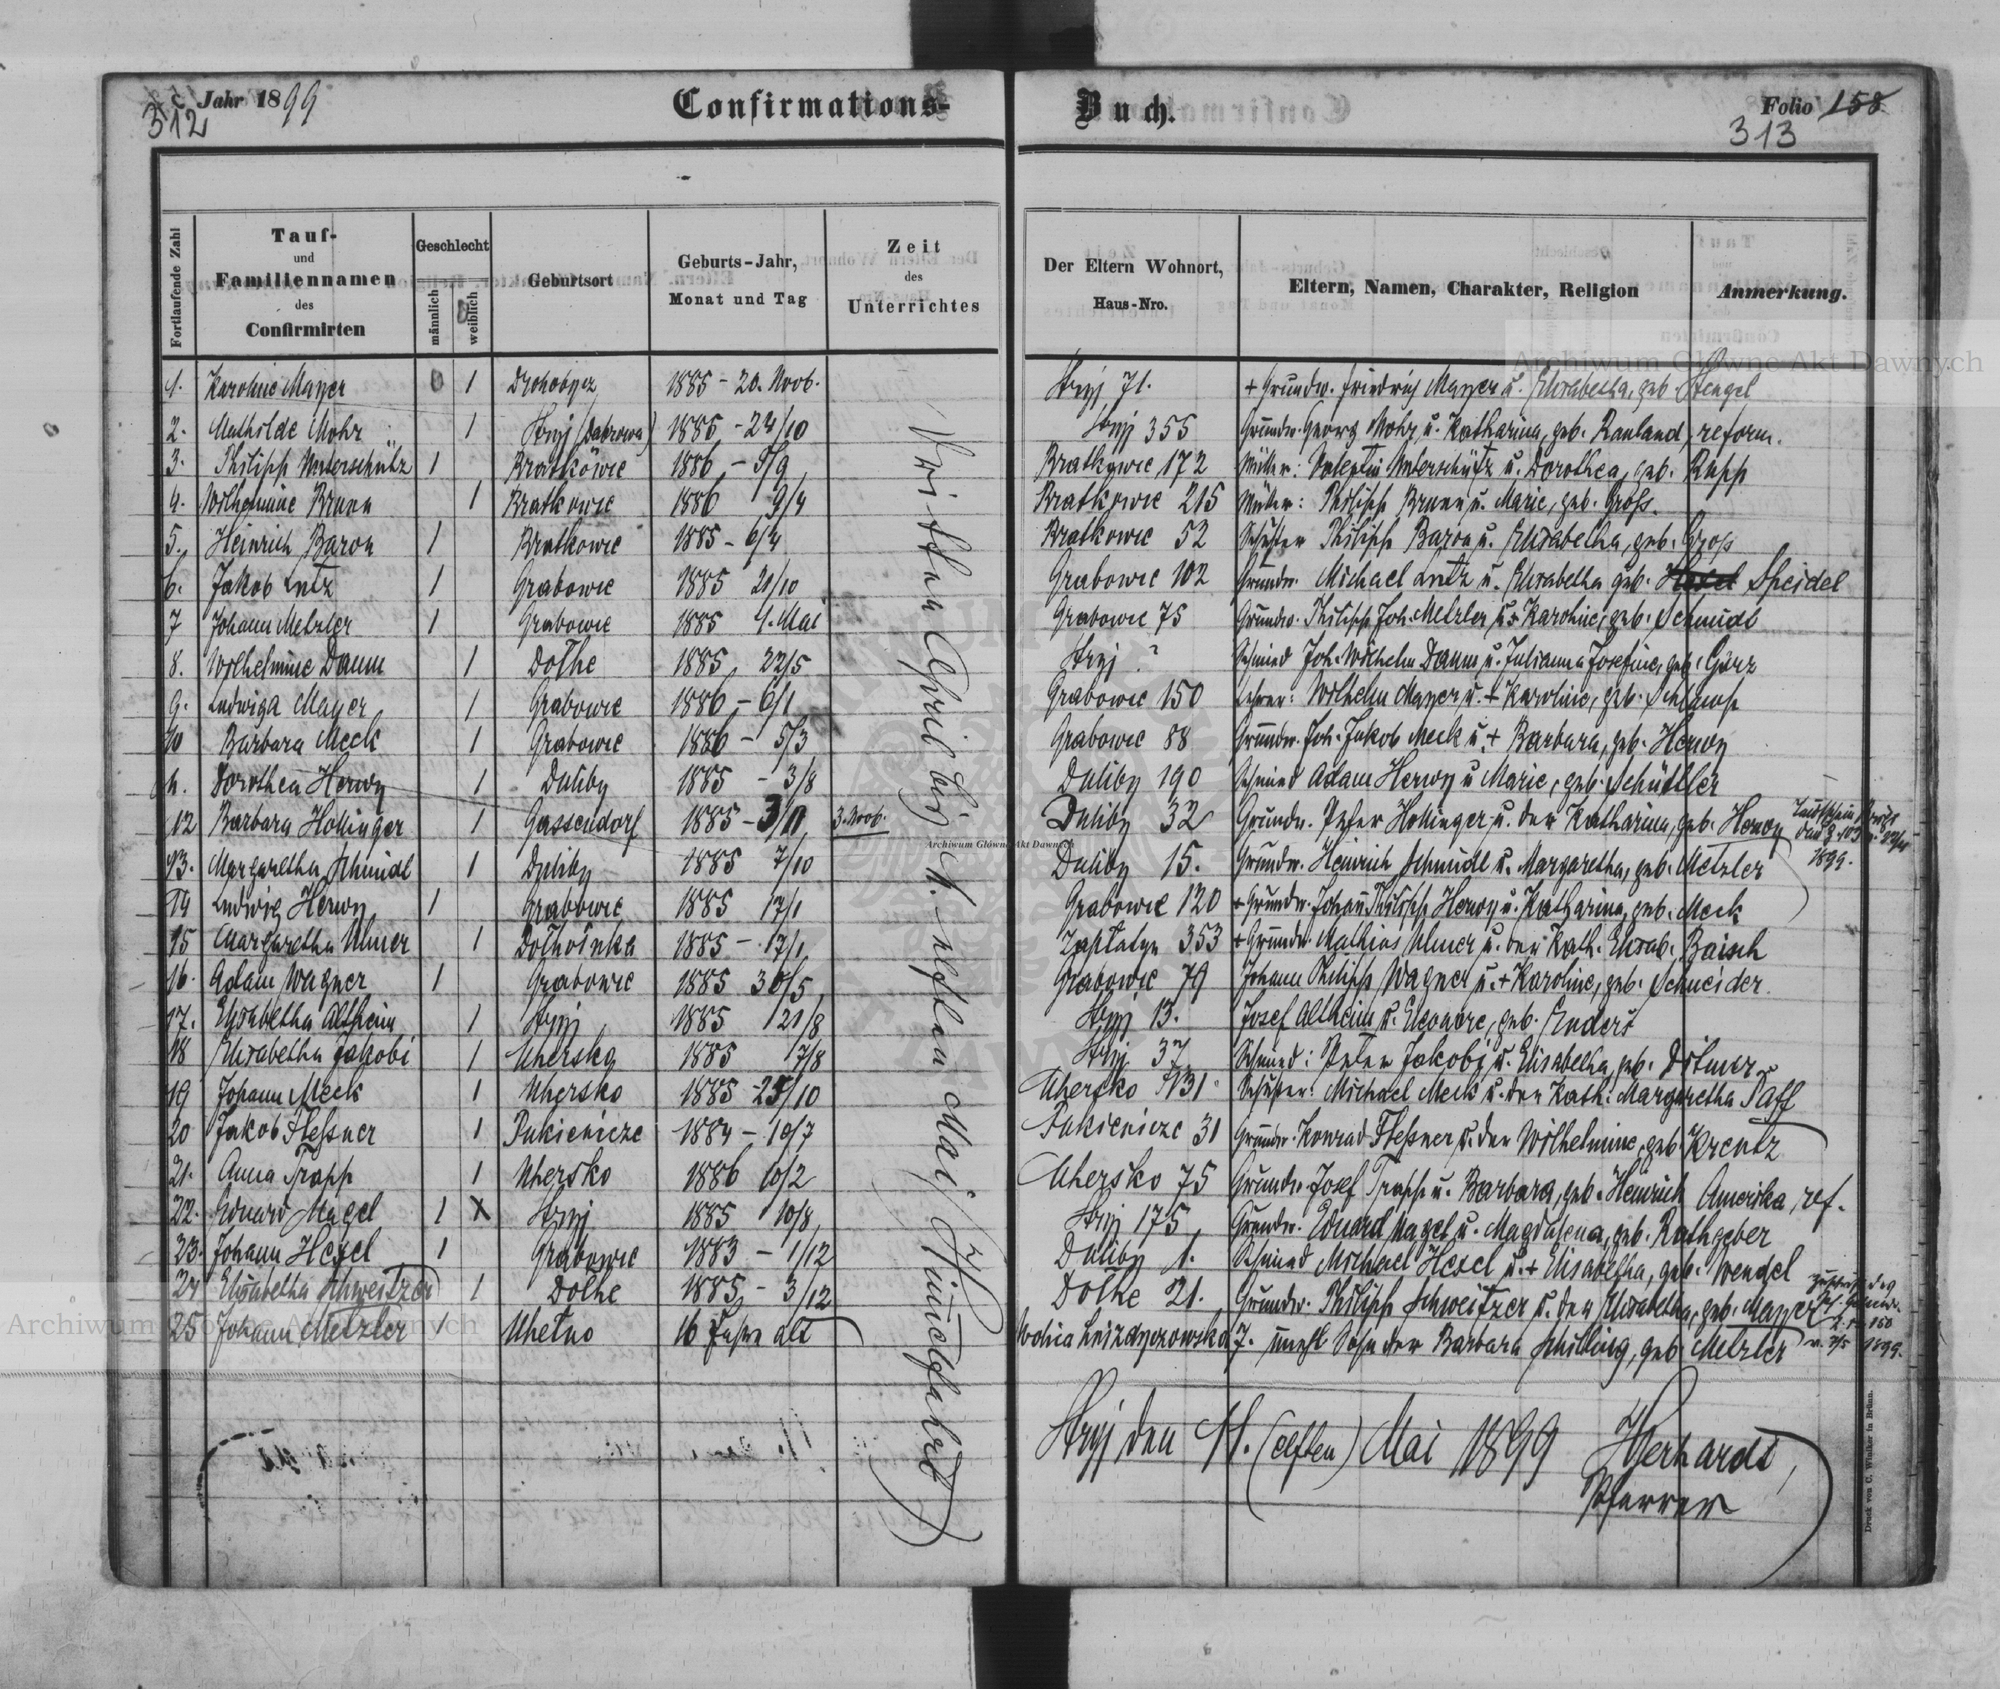 Jahr 1899
312
Confirmations-
Buch.
Folio 158
313
Fortlaufende Zahl
Tauf-
und
Familiennamen
des
Confirmirten
Geschlecht
männlich
weiblich
Geburtsort
Geburts-Jahr,
Monat und Tag
Zeit
des
Unterrichtes
Der Eltern Wohnort,
Haus-Nro.
Eltern, Namen, Charakter, Religion
Anmerkung.
1. Karoline Mayer 1 Drohobycz 1885 - 20. Novb. Stryj 71. + Grundw. Friedrich Mayer u. Elisabetha, geb. Stengel
2. Mathilde Mohr 1 Stryj (Dabrowa) 1885 - 24/10 Stryj 355 Grundw. Georg Mohr u. Katharina, geb. Rauland, reform.
3. Philipp Unterschütz 1 Bratkowic 1886 - 5/9 Bratkowic 172 Müller: Valentin Unterschütz u. Dorothea, geb. Rupp
4. Wilhelmine Brunn 1 Bratkowic 1886 9/4 Bratkowic 215 Müller: Philipp Brunn u. Marie, geb. Groß.
5. Heinrich Baron 1 Bratkowic 1885 - 6/4 Bratkowic 52 Schuster Philipp Baron u. Elisabetha, geb. Gross
6. Jakob Lutz 1 Grabowic 1885 21/10 Grabowic 102 Grundw. Michael Lutz u. Elisabetha geb. Speidel
7 Johann Metzler 1 Grabowic 1885 1. Mai Grabowic 75 Grundw. Philipp Joh. Metzler u. + Karoline, geb. Schmidl
8. Wilhelmine Daum 1 Dolhe 1885, 22/5 Stryj ? Schmied Joh. Wilhelm Daum u. Julianna Josefine, geb. Görz
9. Ludwiga Mayer 1 Grabowic 1886 - 6/1 Grabowic 150 Lehrer: Wilhelm Mayer u. + Karoline, geb.
10 Barbara Meck 1 Grabowic 1886 - 5/3 Grabowic 88 Grundw. Joh. Jakob Meck u. + Barbara, geb. Herwy
11. Dorothea Herwy 1 Duliby 1885 - 3/8 Duliby 190 Schmied Adam Herwy u Marie, geb. Schüttler
12 Barbara Hollinger 1 Gassendorf 1885 - 3/11 3. Novb. Duliby 32 Grundw. Peter Hollinger u. der Katharina, geb. Herwy
1899.
13. Margaretha Schmidl 1 Duliby 1885 7/10 Duliby 15. Grundw. Heinrich Schmidl u. Margaretha, geb. Metzler
14 Ludwig Herwy 1 Grabowic 1885 17/1 Grabowic 120 + Grundw. Johann Philipp Herwy u. Katharina, geb. Meck
15 Margaretha Ulmer 1 Dołhołuka 1885 - 17/1 Zaplatyn 353 + Grundw. Mathias Ulmer u. der Kath. Elisab. Baisch
16. Adam Wagner 1 Grabowic 1885 30/5 Grabowic 79 Johann Philipp Wagner u. + Karoline, geb. Schneider.
17. Elisabetha Altheim 1 Stryj 1885 21/8 Stryj 13. Josef Altheim u. Eleonore, geb. Enders
18 Elisabetha Jakobi 1 Uhersko 1885 17/8 Stryj 37 Schmied: Peter Jakobi u. Elisabetha, geb. Dilmer
19 Johann Meck 1 Uhersko 1885 - 25/10 Uhersko 131 Schuster: Michael Meck u. der Kath. Margaretha Paff
20 Jakob Fleßner 1 Pukienicze 1884 - 10/7 Pukienicze 31 Grundw. Konrad Fleßner u. der Wilhelmine, geb. Kreutz
21. Anna Trapp 1 Uhersko 1886 10/2 Uhersko 75 Grundw. Josef Trapp u. Barbara, geb. Heinrich Amerika, ref.
22. Eduard Magel 1 X Stryj 1885 10/8 Stryj 175 Grundw. Eduard Magel u. Magdalena, geb. Rathgeber
23. Johann Hexel 1 Grabowic 1883 - 1/12 Duliby 1. Schmied Michael Hexel u. + Elisabetha, geb. Wendel
24 Elisabetha Schweitzer 1 Dolhe 1885 - 3/12 Dolhe 21. Grundw. Philipp Schweitzer u. der Elisabetha, geb. Mayer
25 Johann Metzler 1 Uhelno 16 Jahre alt 7. unehl. Sohn der Barbara Schilling, geb. Metzler 1899.
Vom itten April bis 11. elften Mai
Stryj den 11. (elften) Mai 1899
Gerhardt
Pfarrer
Druck von C. Winiker in Brünn.
Archiwum Główne Akt Dawnych
Archiwum Główne Akt Dawnych
Archiwum Główne Akt Dawnych